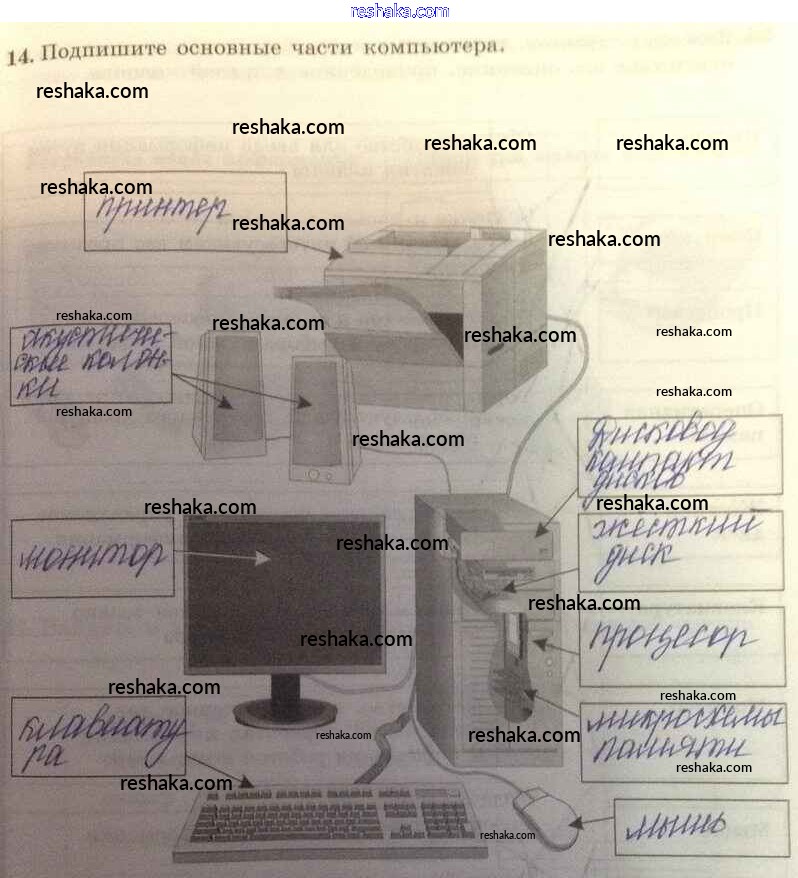 reshaka.com
14. Подпишите основные части компьютера.
reshaka.com
reshaka.com
reshaka.com
reshaka.com
reshaka.com
принтер
reshaka.com
reshaka.com
reshaka.com
reshaka.com
reshaka.com
reshaka.com
акустиче-
ские колон-
ки
reshaka.com
reshaka.com
reshaka.com
Дисковод
компакт
дисков
reshaka.com
reshaka.com
жесткий
диск
reshaka.com
монитор
reshaka.com
reshaka.com
процесор
reshaka.com
reshaka.com
клавиату
ра
микросхемы
памяти
reshaka.com
reshaka.com
reshaka.com
reshaka.com
reshaka.com
мышь